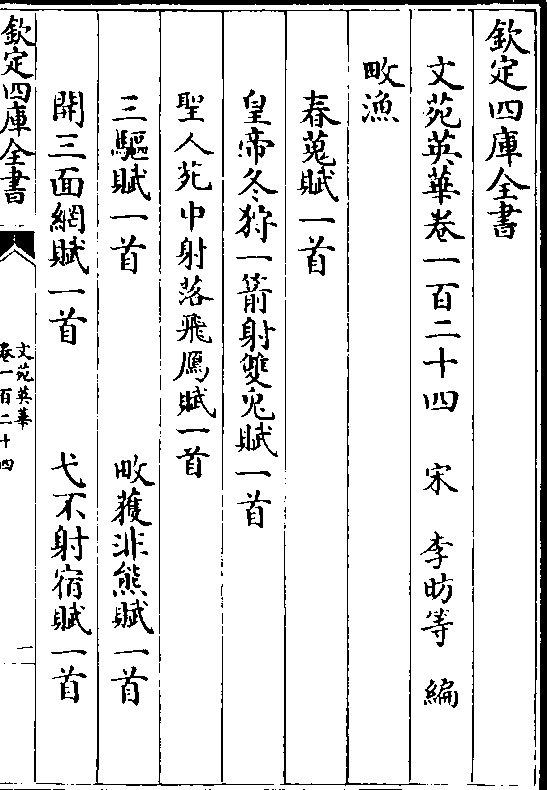 欽定四庫全書
文苑英華卷一百二十四 宋 李昉等 編
畋漁
春蒐賦一首
皇帝冬狩一箭射雙兎賦一首
聖人苑中射落飛鴈賦一首
三驅賦一首 畋獲非熊賦一首
開三面網賦一首 弋不射宿賦一首
欽定四庫全書
文苑英華
卷一百二十四
一